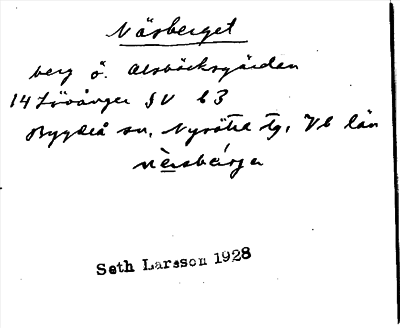 Näsberget
berg ö. Alsbäcksgården
14 Lövånger SV b3
Bygdeå sn, Nysätra tg, Vb län
Seth Larsson 1928